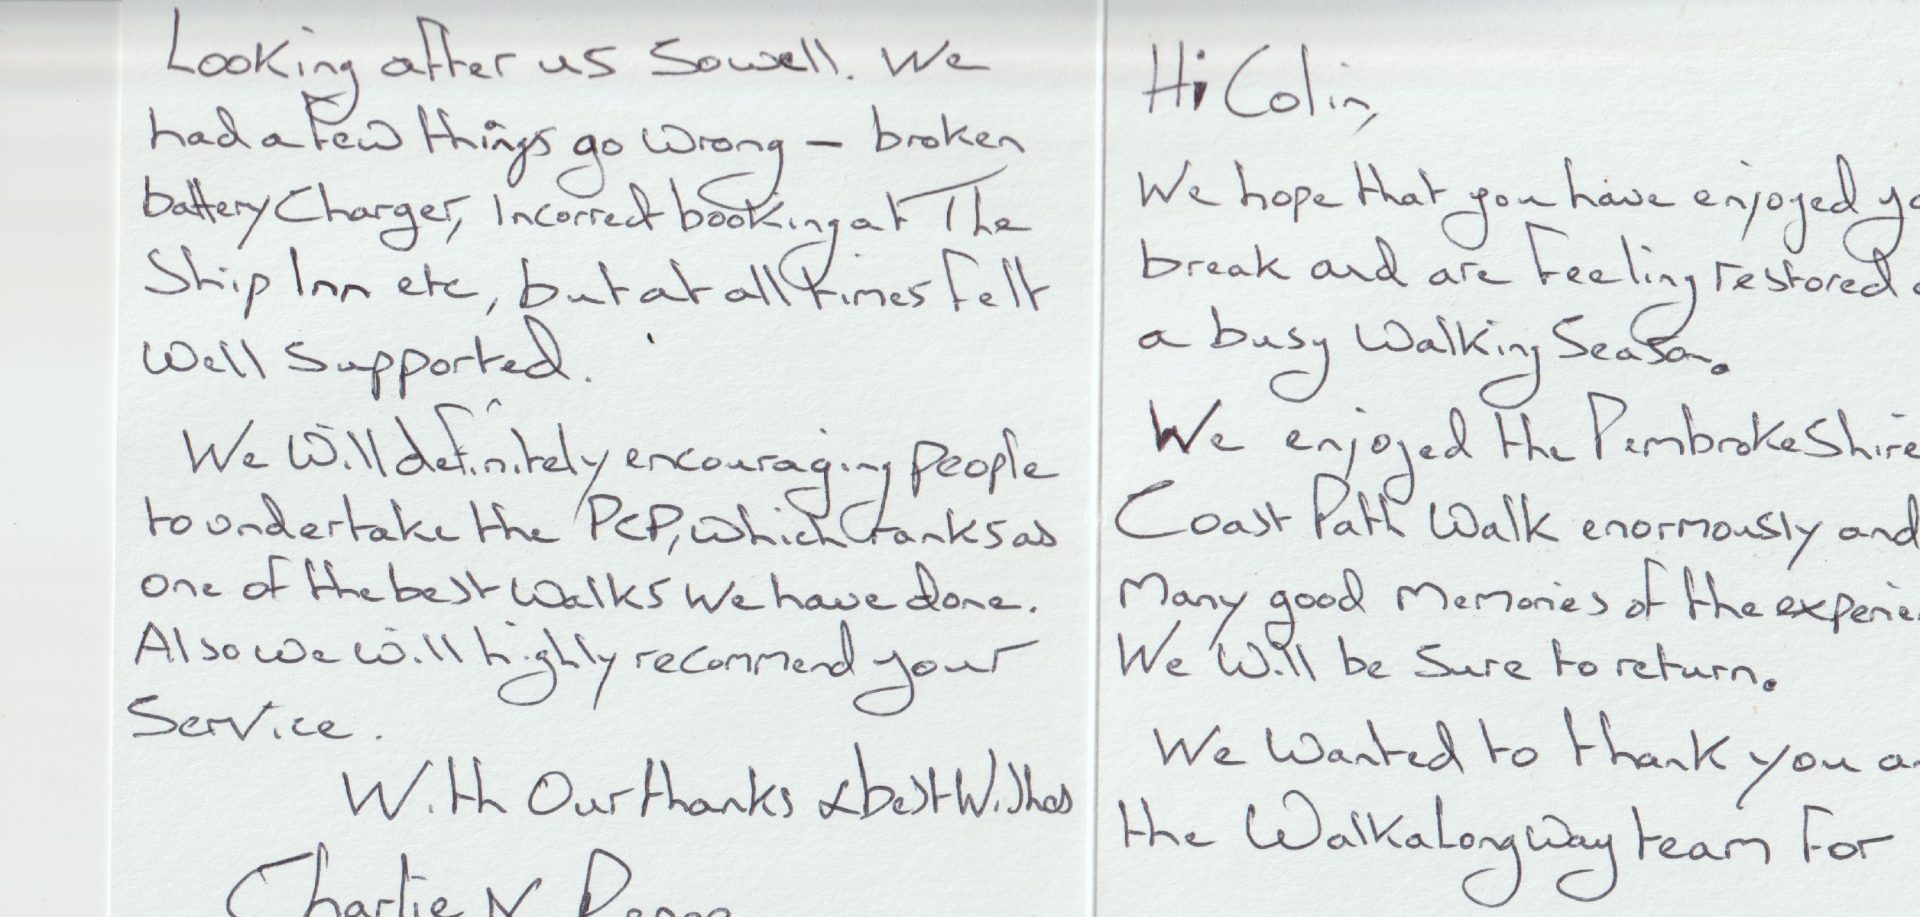 Looking after us so well. We
had a few things go wrong – broken
battery Charger, Incorrect booking at The
Ship Inn etc, but at all times felt
Well Supported.
We Will definitely encouraging people
to undertake the PCP, which ranks as
one of the best walks we have done.
Also we will highly recommend your
Service.
With Our thanks & best Wishes
Charlie
Hi Colin,
We hope that you have enjoyed yo
break and are feeling restored
a busy Walking Season.
We enjoyed the PembrokeShire
Coast Path Walk enormously and
Many good Memories of the experie
We Will be Sure to return.
We Wanted to thank you a
the Walkalongway team for